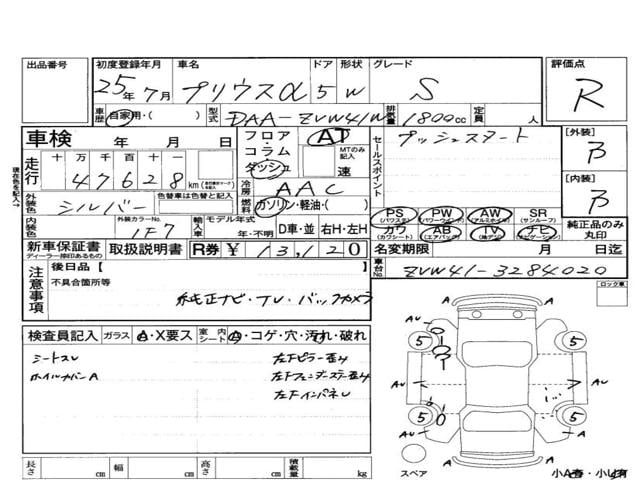 出品番号 初度登録年月 車名 ドア 形状 グレード 評価点
25年7月 プリウスα 5 W S R
車歴 自家用・( ) 型式 DAA-ZVW41W 排気量 1800cc 定員 人
車検 年 月 日
フロア・コラム・ダッシュ AT MTのみ記入 速
セールスポイント プッシュスタート
[外装] B
[内装] B
走行 十 万 千 百 十 一
47628 km
冷房 AAC
外装色 シルバー 色替車は色替と記入
燃料 ガソリン・軽油・( )
PS (パワステ) PW (パワーウィンド) AW (アルミホイル) SR (サンルーフ)
カワ (シート) AB (エアバッグ) TV (地デジ) ナビ (ナビゲーション)
純正品のみ丸印
内装色 外装カラーNo. 1F7 輸入車 モデル年式 年・不明 D車・並 右H・左H
新車保証書 ディーラー捺印あるもの 取扱説明書 R券 ¥ 13,120
名変期限 月 日迄
車台No. ZVW41-3284020
注意事項
後日品 [ ]
不具合箇所等
純正ナビ・TV・バックカメラ
現在色を記入→
ロック車
検査員記入 ガラス A・X要ス 室内シート A・コゲ・穴・汚れ・破れ
シートスレ 左Fピラー歪み
ホイルカバーA 左Fフェンダーステー歪み
左Fインパネレ
AU A A
5 5
AU AU
5 5
A A
スペア 小A有・小U有
長さ cm 幅 cm 高さ cm 積載量 kg